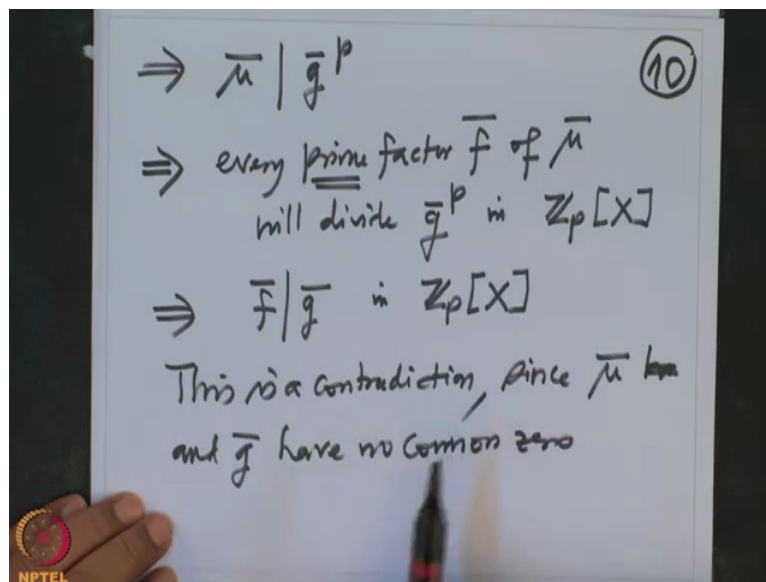 ⇒ μ̄ | ḡ^p
10
⇒ every prime factor f̄ of μ̄
will divide ḡ^p in ℤ_p[X]
⇒ f̄ | ḡ in ℤ_p[X]
This is a contradiction, since μ̄
and ḡ have no common zero
NPTEL